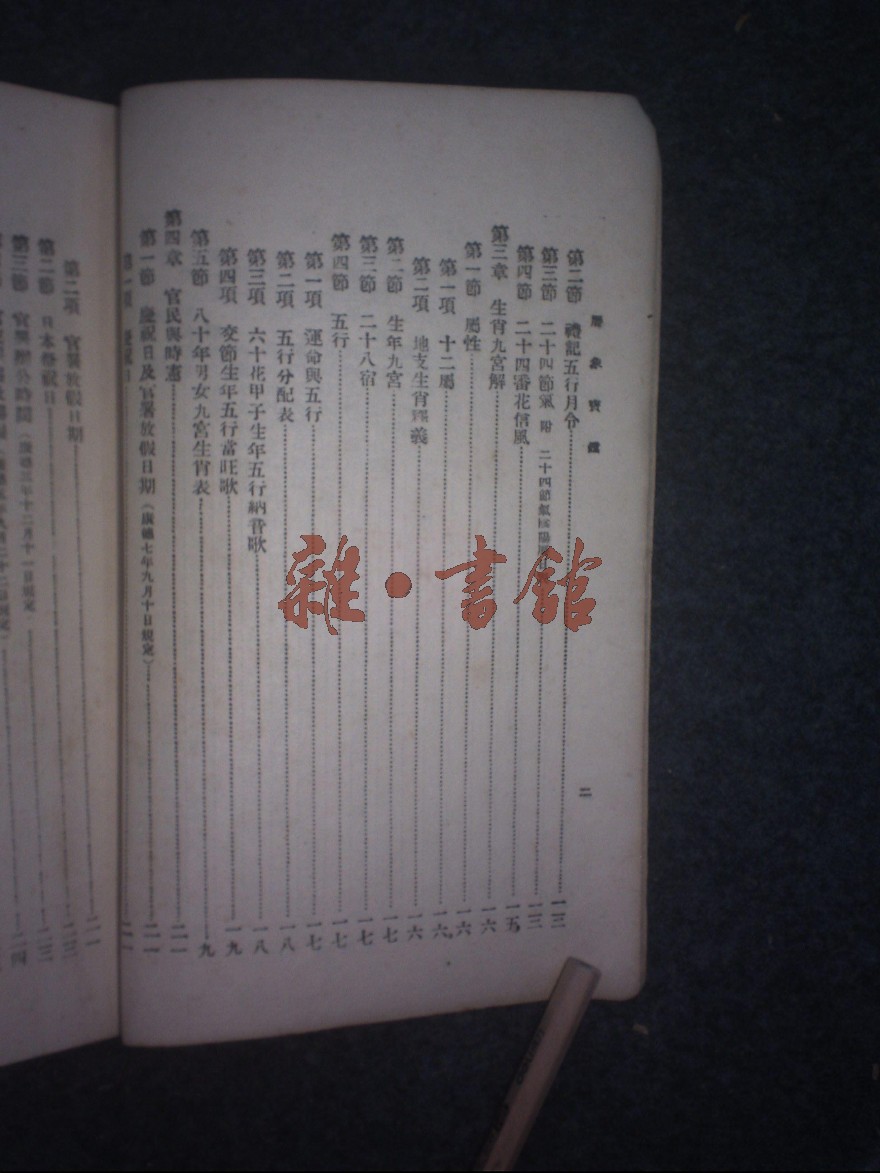 曆象寶鑑
二
第二節 禮記五行月令 一三
第三節 二十四節氣 附 二十四節氣 一三
第四節 二十四番花信風 一五
第三章 生肖九宮解 一六
第一節 屬性 一六
第一項 十二屬 一六
第二項 地支生肖釋義 一六
第二節 生年九宮 一七
第三節 二十八宿 一七
第四節 五行 一七
第一項 運命與五行 一七
第二項 五行分配表 一八
第三項 六十花甲子生年五行納音歌 一八
第四項 交節生年五行當旺歌 一九
第五節 八十年男女九宮生肖表 九
第四章 官民與時憲 二一
第一節 慶祝日及官署放假日期（康德七年九月十日規定） 二一
第一項 慶祝日 二一
第二項 官署放假日期 二一
第二節 日本祭祝日 二三
第三節 官署辦公時間（康德三年十二月十一日規定） 二四
雜·書館